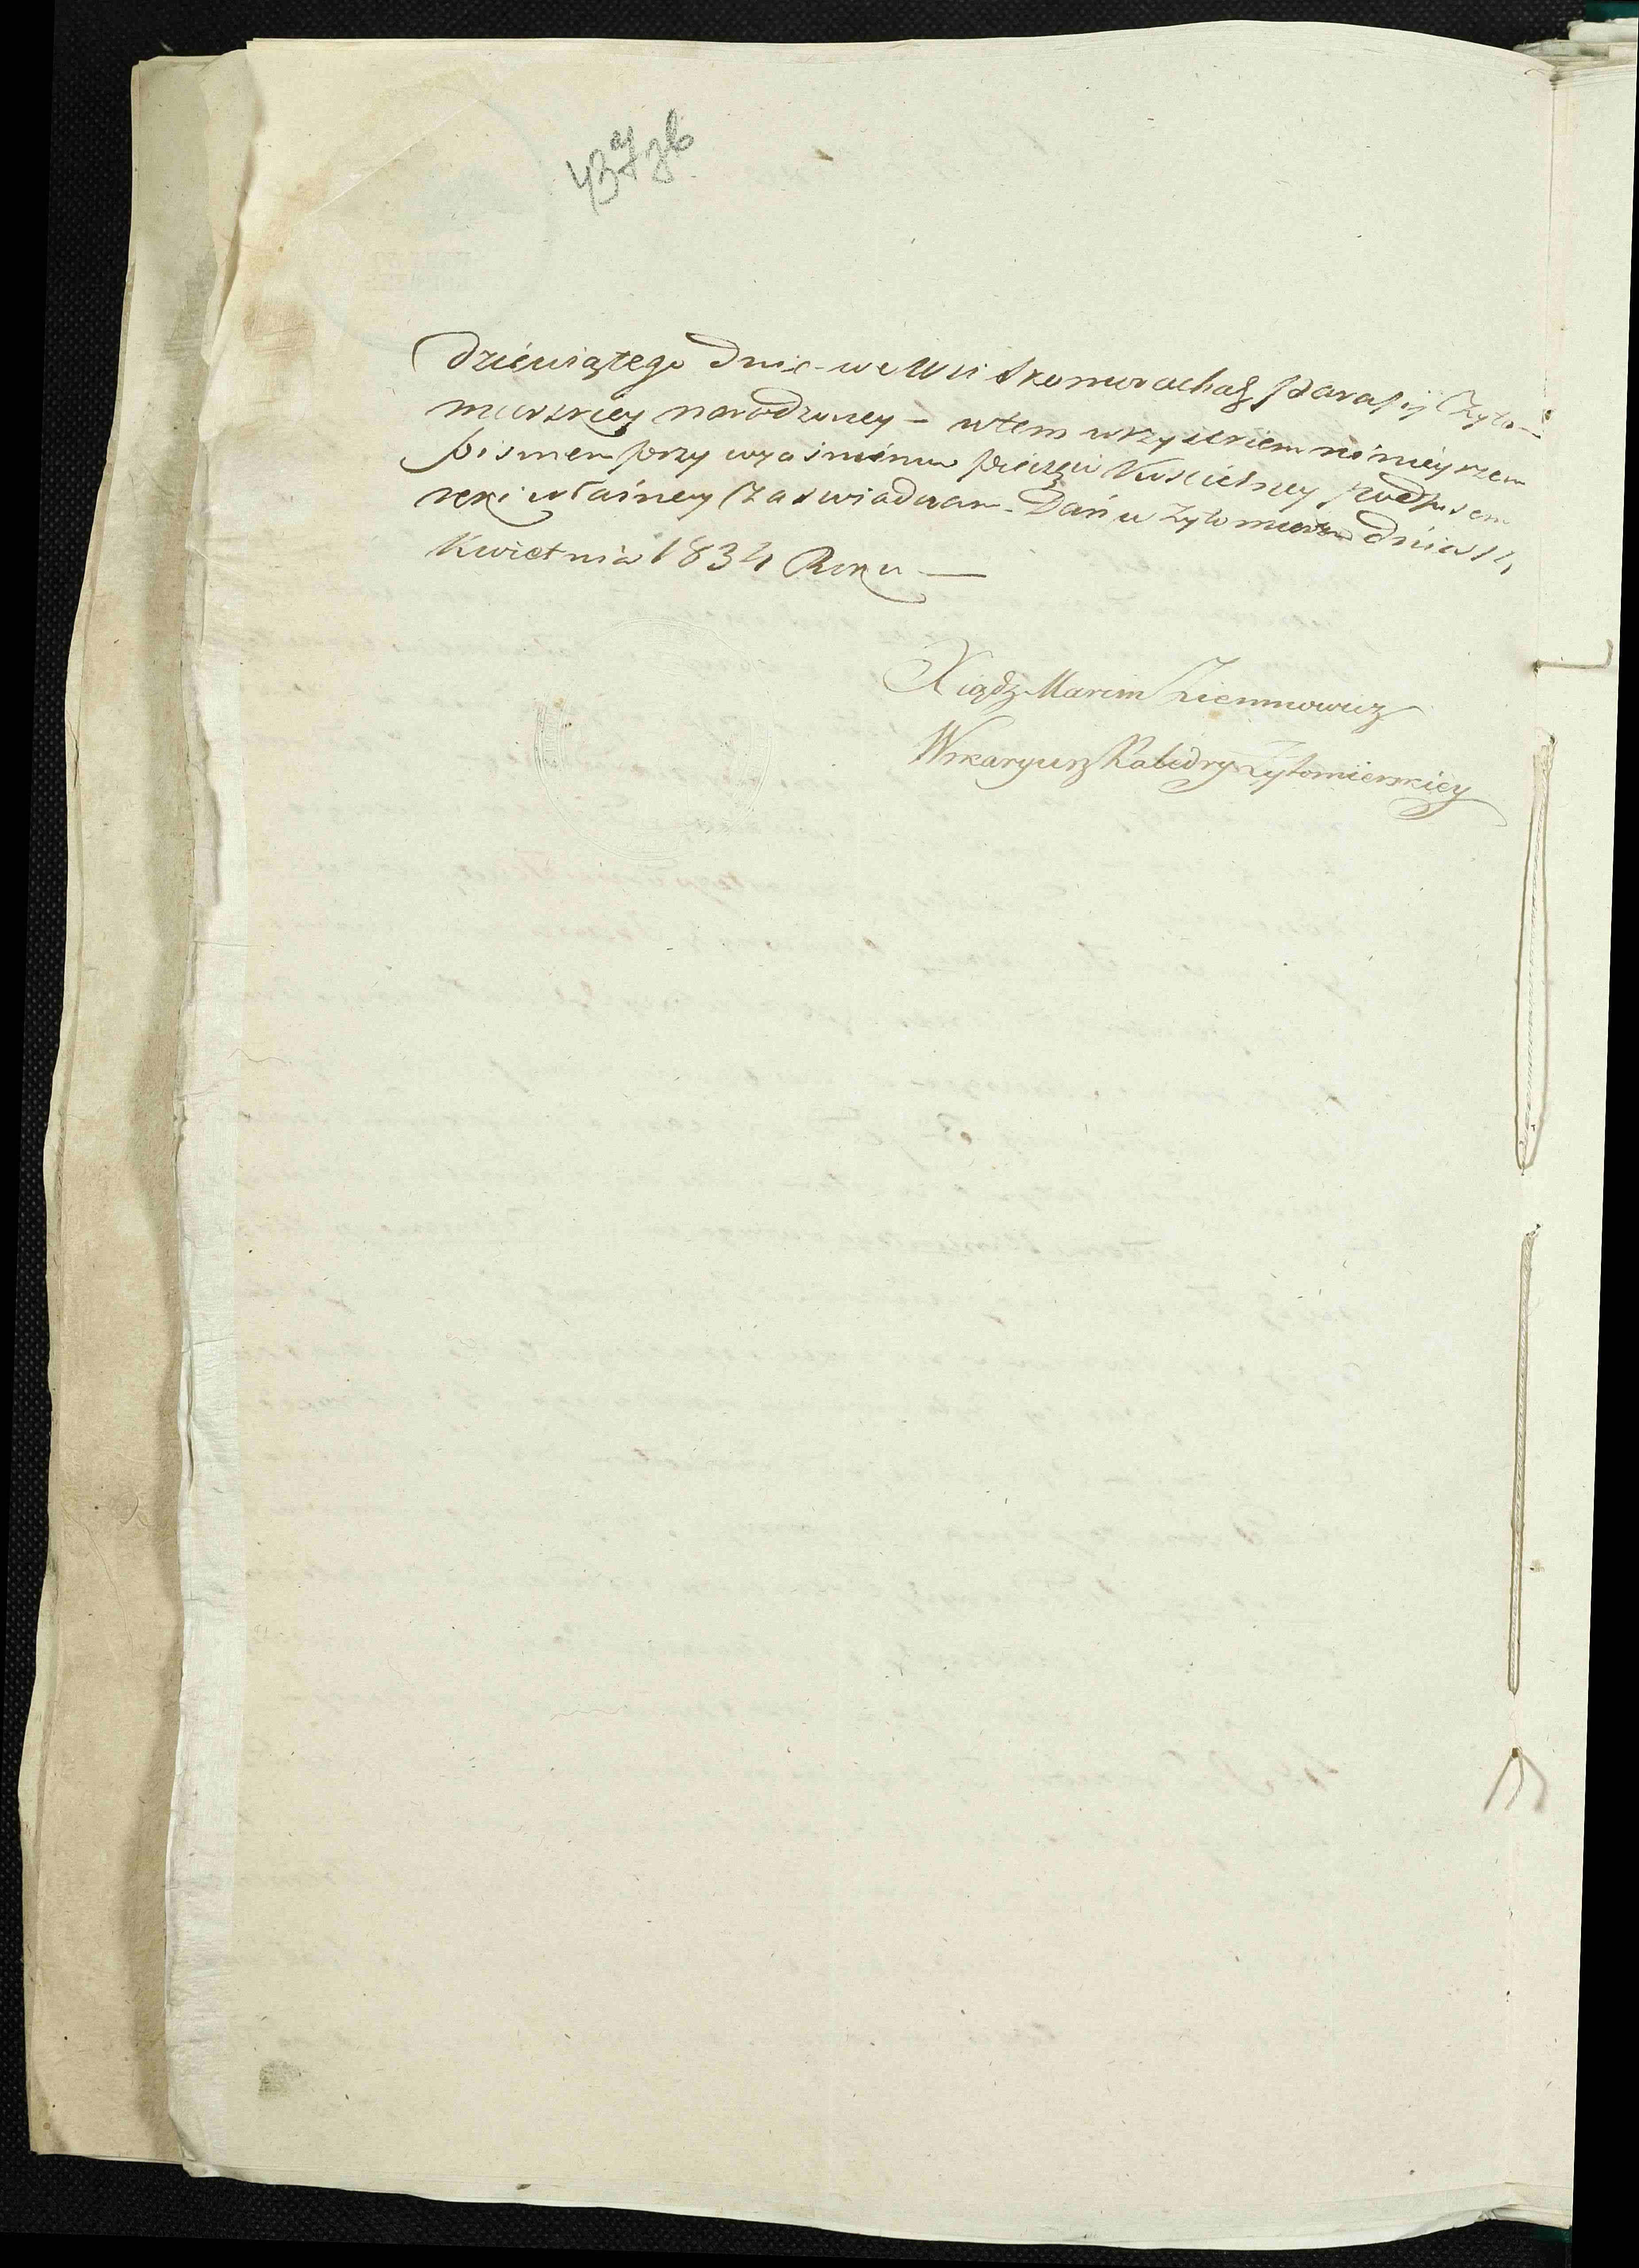 43 a/ зв.
dziewiątego dnia we Wsi Skomorochach Parafij Żyto=
mirskiey narodzoney – w tem wszystkiem ninieyszem
pismem przy wyciśnieniu pieczęci Kościelney podpisem
ręki własney Zaswiadczam. Dan w Żytomierzu dnia 14
Kwietnia 1834 Roku —
Xiądz Marcin Ziemnowicz
Wikaryusz Katedry Żytomierskiey